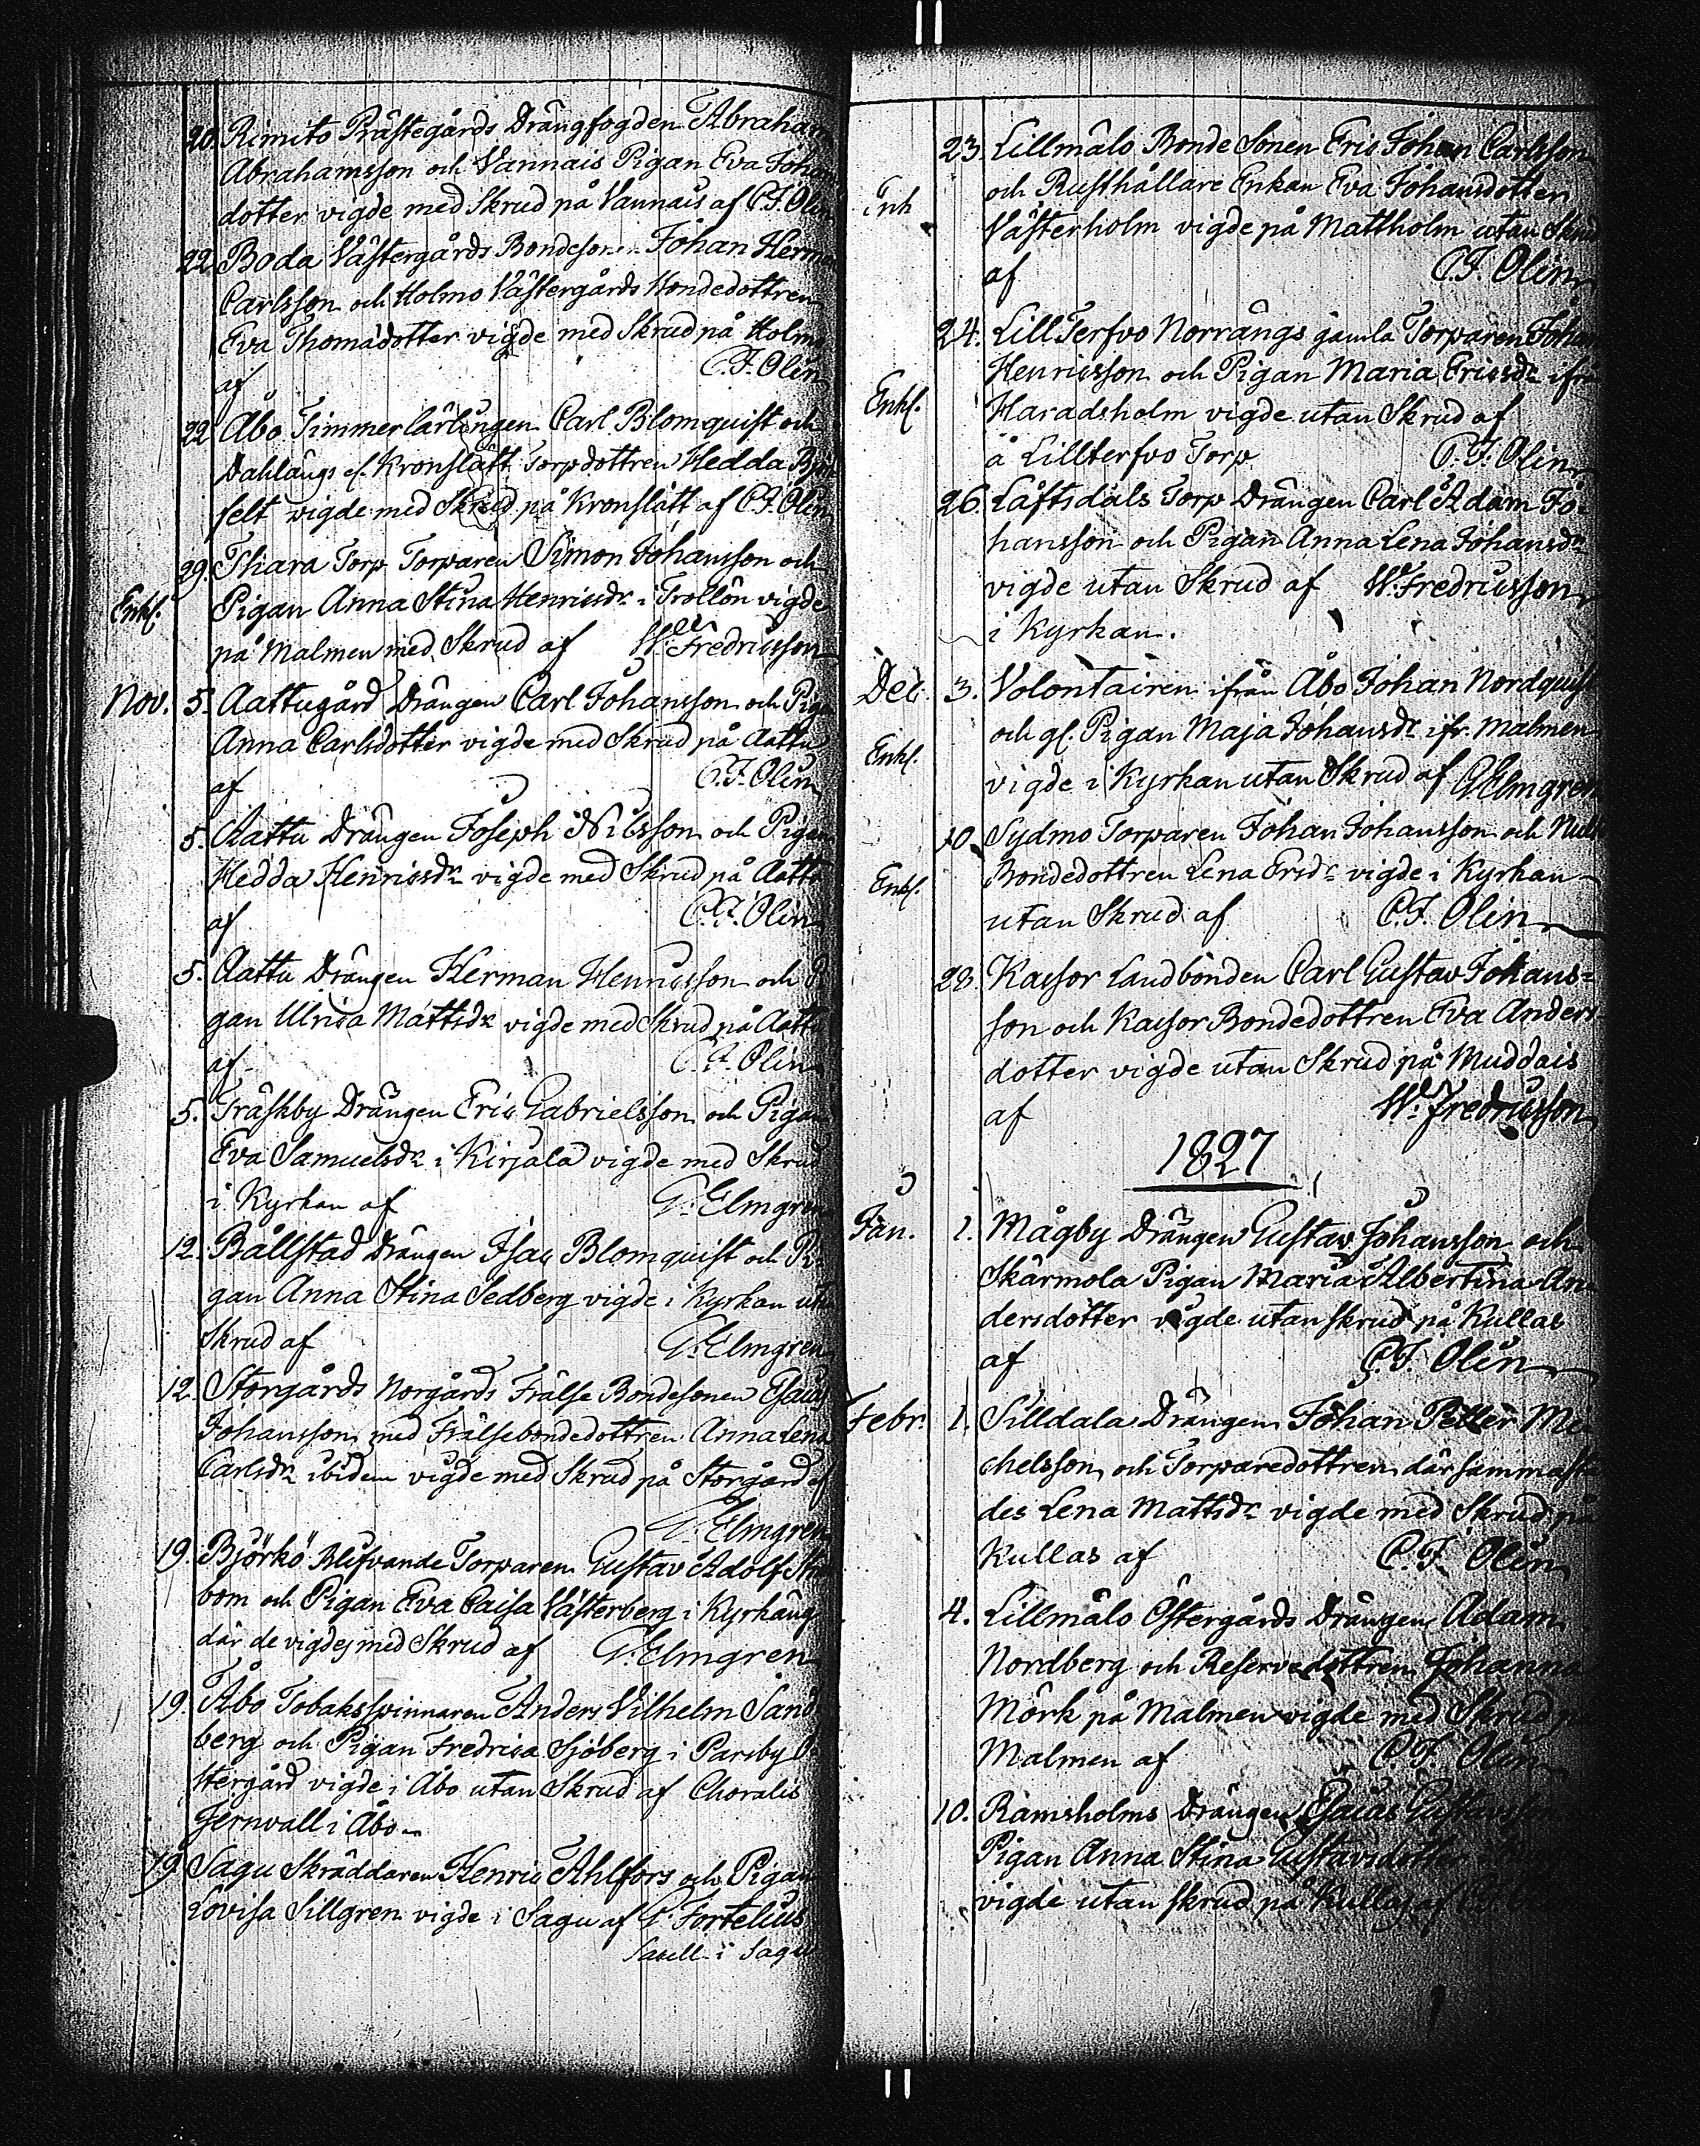 20. Rimito Prästegårds Drängfogden Abraham
Abrahamsson och Vannais Pigan Eva Johan
dotter vigde med Skrud på Vannais af C.F. Olin
22 Boda Västergårds Bondeson Johan Herman
Carlsson och Holmo Västergårds Bondedottren
Eva Thomädotter vigde med Skrud på Holmo
af C.F. Olin
22 Åbo Timmerlärlingen Carl Blomquist och
Dahlängs el. Kronslätt Torpdottren Hedda
felt vigde med Skrud på Kronslätt af C.F. Olin
29. Thiara Torp Torparen Simon Johansson och
Enkl. Pigan Anna Stina Henricsdr i Trollön vigde
på Malmen med Skrud af W. Fredricsson
Nov. 5. Aattugård Drängen Carl Johansson och Pigan
Anna Carlsdotter vigde med Skrud på Aattu
af C.F. Olin
5. Aattu Drängen Joseph Nilsson och Pigan
Hedda Henricsdr vigde med Skrud på Aattu
af C.F. Olin
5. Aattu Drängen Herman Henricsson och Pi
gan Ulrica Mattsdr vigde med Skrud på Aattu
af C.F. Olin
5. Träskby Drängen Eric Gabrielsson och Pigan
Eva Samuelsdr i Kirjala vigde med Skrud
i Kyrkan af G. Elmgren
12. Bållstad Drängen Isac Blomquist och Pi
gan Anna Stina Sedberg vigde i Kyrkan utan
Skrud af G. Elmgren
12. Storgårds Norgårds Frälse Bondesonen Esaias
Johansson med Frälsebondedottren Anna Lena
Carlsdr ibidem vigde med Skrud på Storgård af
G. Elmgren
19. Björkö Blifvande Torparen Gustav Adolf
bom och Pigan Eva Caisa Västerberg i Kyrkäng
där de vigdes med Skrud af G. Elmgren
19. Åbo Tobaksspinnaren Anders Vilhelm Sand
berg och Pigan Fredrica Sjöberg i Parsby Ö
stergård vigde i Åbo utan Skrud af Choralis
Jernvall i Åbo
19 Sagu Skräddaren Henric Ahlfors och Pigan
Lovisa Sillgren vigde i Sagu af G. Fortelius
Sacell. i Sagu
23. Lillmälo Bonde Sonen Eric Johan Carlsson
Enk och Rusthållare Enkan Eva Johansdotter
Västerholm vigde på Mattholm utan Skrud
af C.F. Olin
24. Lill Terfvo Norrängs gamla Torparen Johan
Henricsson och Pigan Maria Ericsdr ifr
Enkl. Haradsholm vigde utan Skrud af
å Lillterfvo Torp C.F. Olin
26. Låftsdals Torp Drängen Carl Adam Jo-
hansson och Pigan Anna Lena Johansdr
vigde utan Skrud af W. Fredricsson
i Kyrkan.
Dec. 3. Volontairen ifrån Åbo Johan Nordquist
och gl. Pigan Maja Johansdr ifr. Malmen
Enkl. vigde i Kyrkan utan Skrud af G Elmgren
10. Sydmo Torparen Johan Johansson och
Enkl. Bondedottren Lena Ersdr vigde i Kyrkan
utan Skrud af C.F. Olin
28. Kassor Landbonden Carl Gustav Johans=
son och Kassor Bondedottren Eva Anders
dotter vigde utan Skrud på Muddais
af W. Fredricsson
1827
Jan. 1. Mågby Drängen Gustav Johansson och
Skärmola Pigan Maria Albertina An
dersdotter vigde utan skrud på Kullas
af C.F. Olin
Febr. 1. Silldala Drängen Johan Petter Mi
chelsson och Torparedottren därsammastä
des Lena Mattsdr vigde med Skrud på
Kullas af C.F. Olin
4. Lillmälo Östergårds Drängen Adam
Nordberg och Reservedottren Johanna
Mörk på Malmen vigde med Skrud på
Malmen af C.F. Olin
10. Ramsholms Drängen Esaias Gustavsson
Pigan Anna Stina Gustavsdotter
vigde utan skrud på Kullas af C.F.